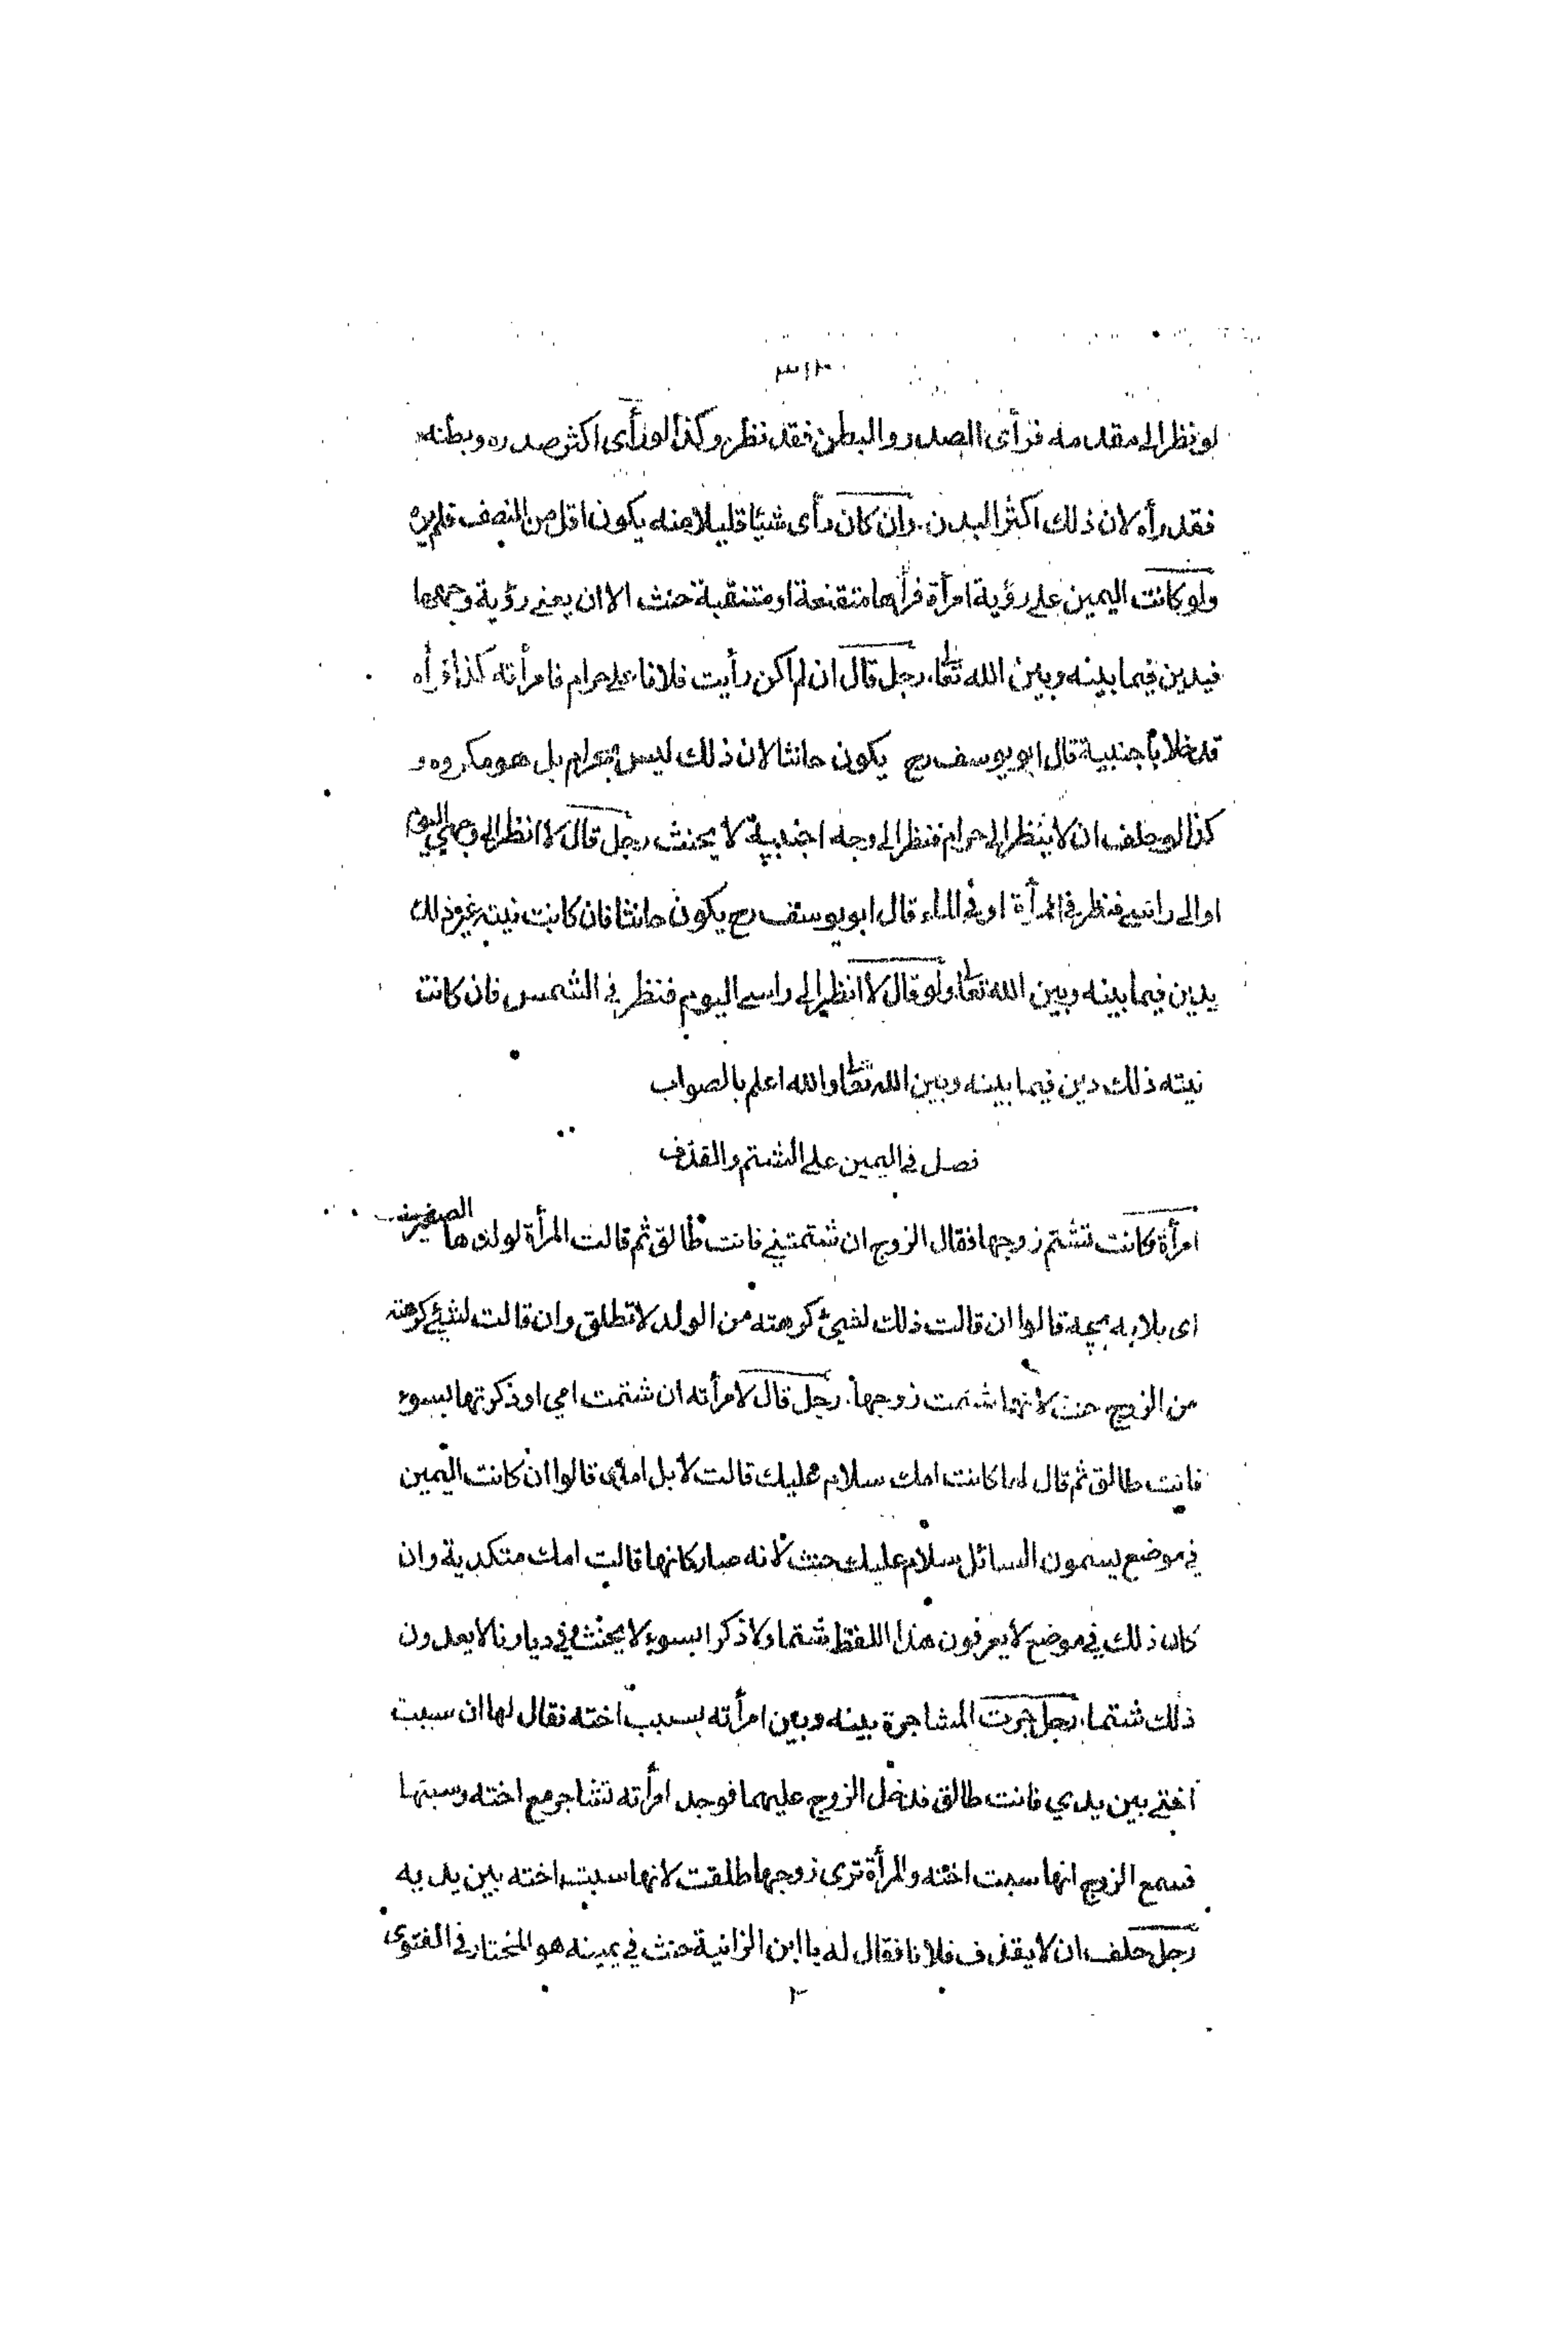 ٣١٢
لو نظر الى مقدمه فرأى الصدر والبطن فقد نظر وكذا لو رأى اكثر صدره وبطنه
فقد رأه لان ذلك اكثر البدن. وان كان رأى شيئا قليلا منه يكون اقل من النصف فلم يره
ولو كانت اليمين على رؤية امرأة فرأها متقنعة او متنقبة حنث الا ان يعني رؤية وجهها
فيدين فيما بينه وبين الله تعا، رجل قال ان لم اكن رأيت فلانا على حرام فامرأته كذا فرأه
قد خلا بأجنبية قال ابو يوسف رح يكون حانثا لان ذلك ليس بحرام بل هو مكروه و
كذا لو حلف ان لا ينظر الى حرام فنظر الى وجه اجنبية لا يحنث رجل قال لا انظر الى وجهي اليوم
او الى راسي فنظر في المرأة او في الماء قال ابو يوسف رح يكون حانثا فان كانت نيته غير ذلك
يدين فيما بينه وبين الله تعا ولو قال لا انظر الى راسي اليوم فنظر في الشمس فان كانت
نيته ذلك دين فيما بينه وبين الله تعا والله اعلم بالصواب
فصل في اليمين على الشتم والقذف
امرأة كانت تشتم زوجها فقال الزوج ان شتمتني فانت طالق ثم قالت المرأة لولدها الصغير
اى بلابه بچه قالوا ان قالت ذلك لشيئ كرهته من الولد لا تطلق وان قالت لشيئ كرهته
من الزوج حنث لانها شتمت زوجها. رجل قال لامرأته ان شتمت امي او ذكرتها بسوء
فانت طالق ثم قال لها كانت امك سلام عليك قالت لا بل امك قالوا ان كانت اليمين
في موضع يسمون السائل سلام عليك حنث لانه صار كانها قالت امك متكدية وان
كان ذلك في موضع لا يعرفون هذا اللفظ شتما ولا ذكرا بسوء لا يحنث وفي ديارنا لا يعدون
ذلك شتما، رجل جرت المشاجرة بينه وبين امرأته بسبب اخته فقال لها ان سببت
اختي بين يدي فانت طالق فدخل الزوج عليهما فوجد امرأته تتشاجر مع اخته وسبتها
فسمع الزوج انها سبت اخته والمرأة ترى زوجها طلقت لانها سبت اخته بين يديه
رجل حلف ان لا يقذف فلانا فقال له يا ابن الزانية حنث في يمينه هو المختار في الفتوى
٢